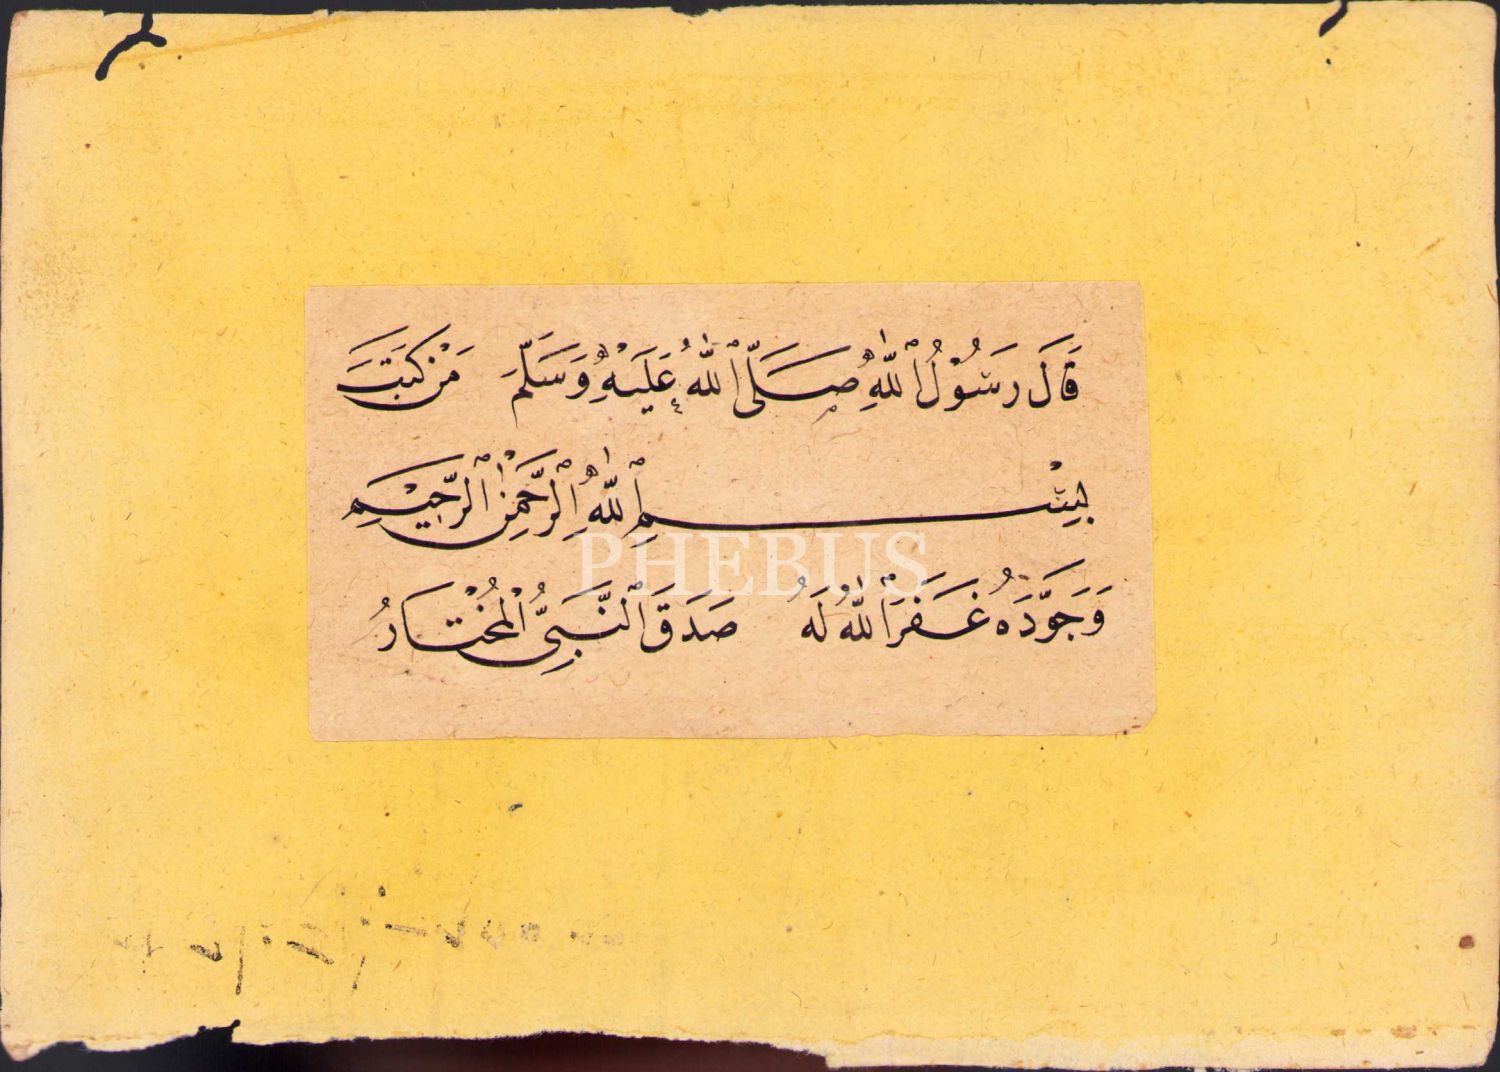 قَالَ رَسُوْلُ ٱللّٰهِ صَلَّى ٱللّٰهُ عَلَيْهِ وَسَلَّمَ مَنْ كَتَبَ
بِسْمِ ٱللّٰهِ ٱلرَّحْمٰنِ ٱلرَّحِيْمِ
وَجَوَّدَهُ غَفَرَ ٱللّٰهُ لَهُ صَدَقَ ٱلنَّبِىُّ الْمُخْتَارُ
PHEBUS